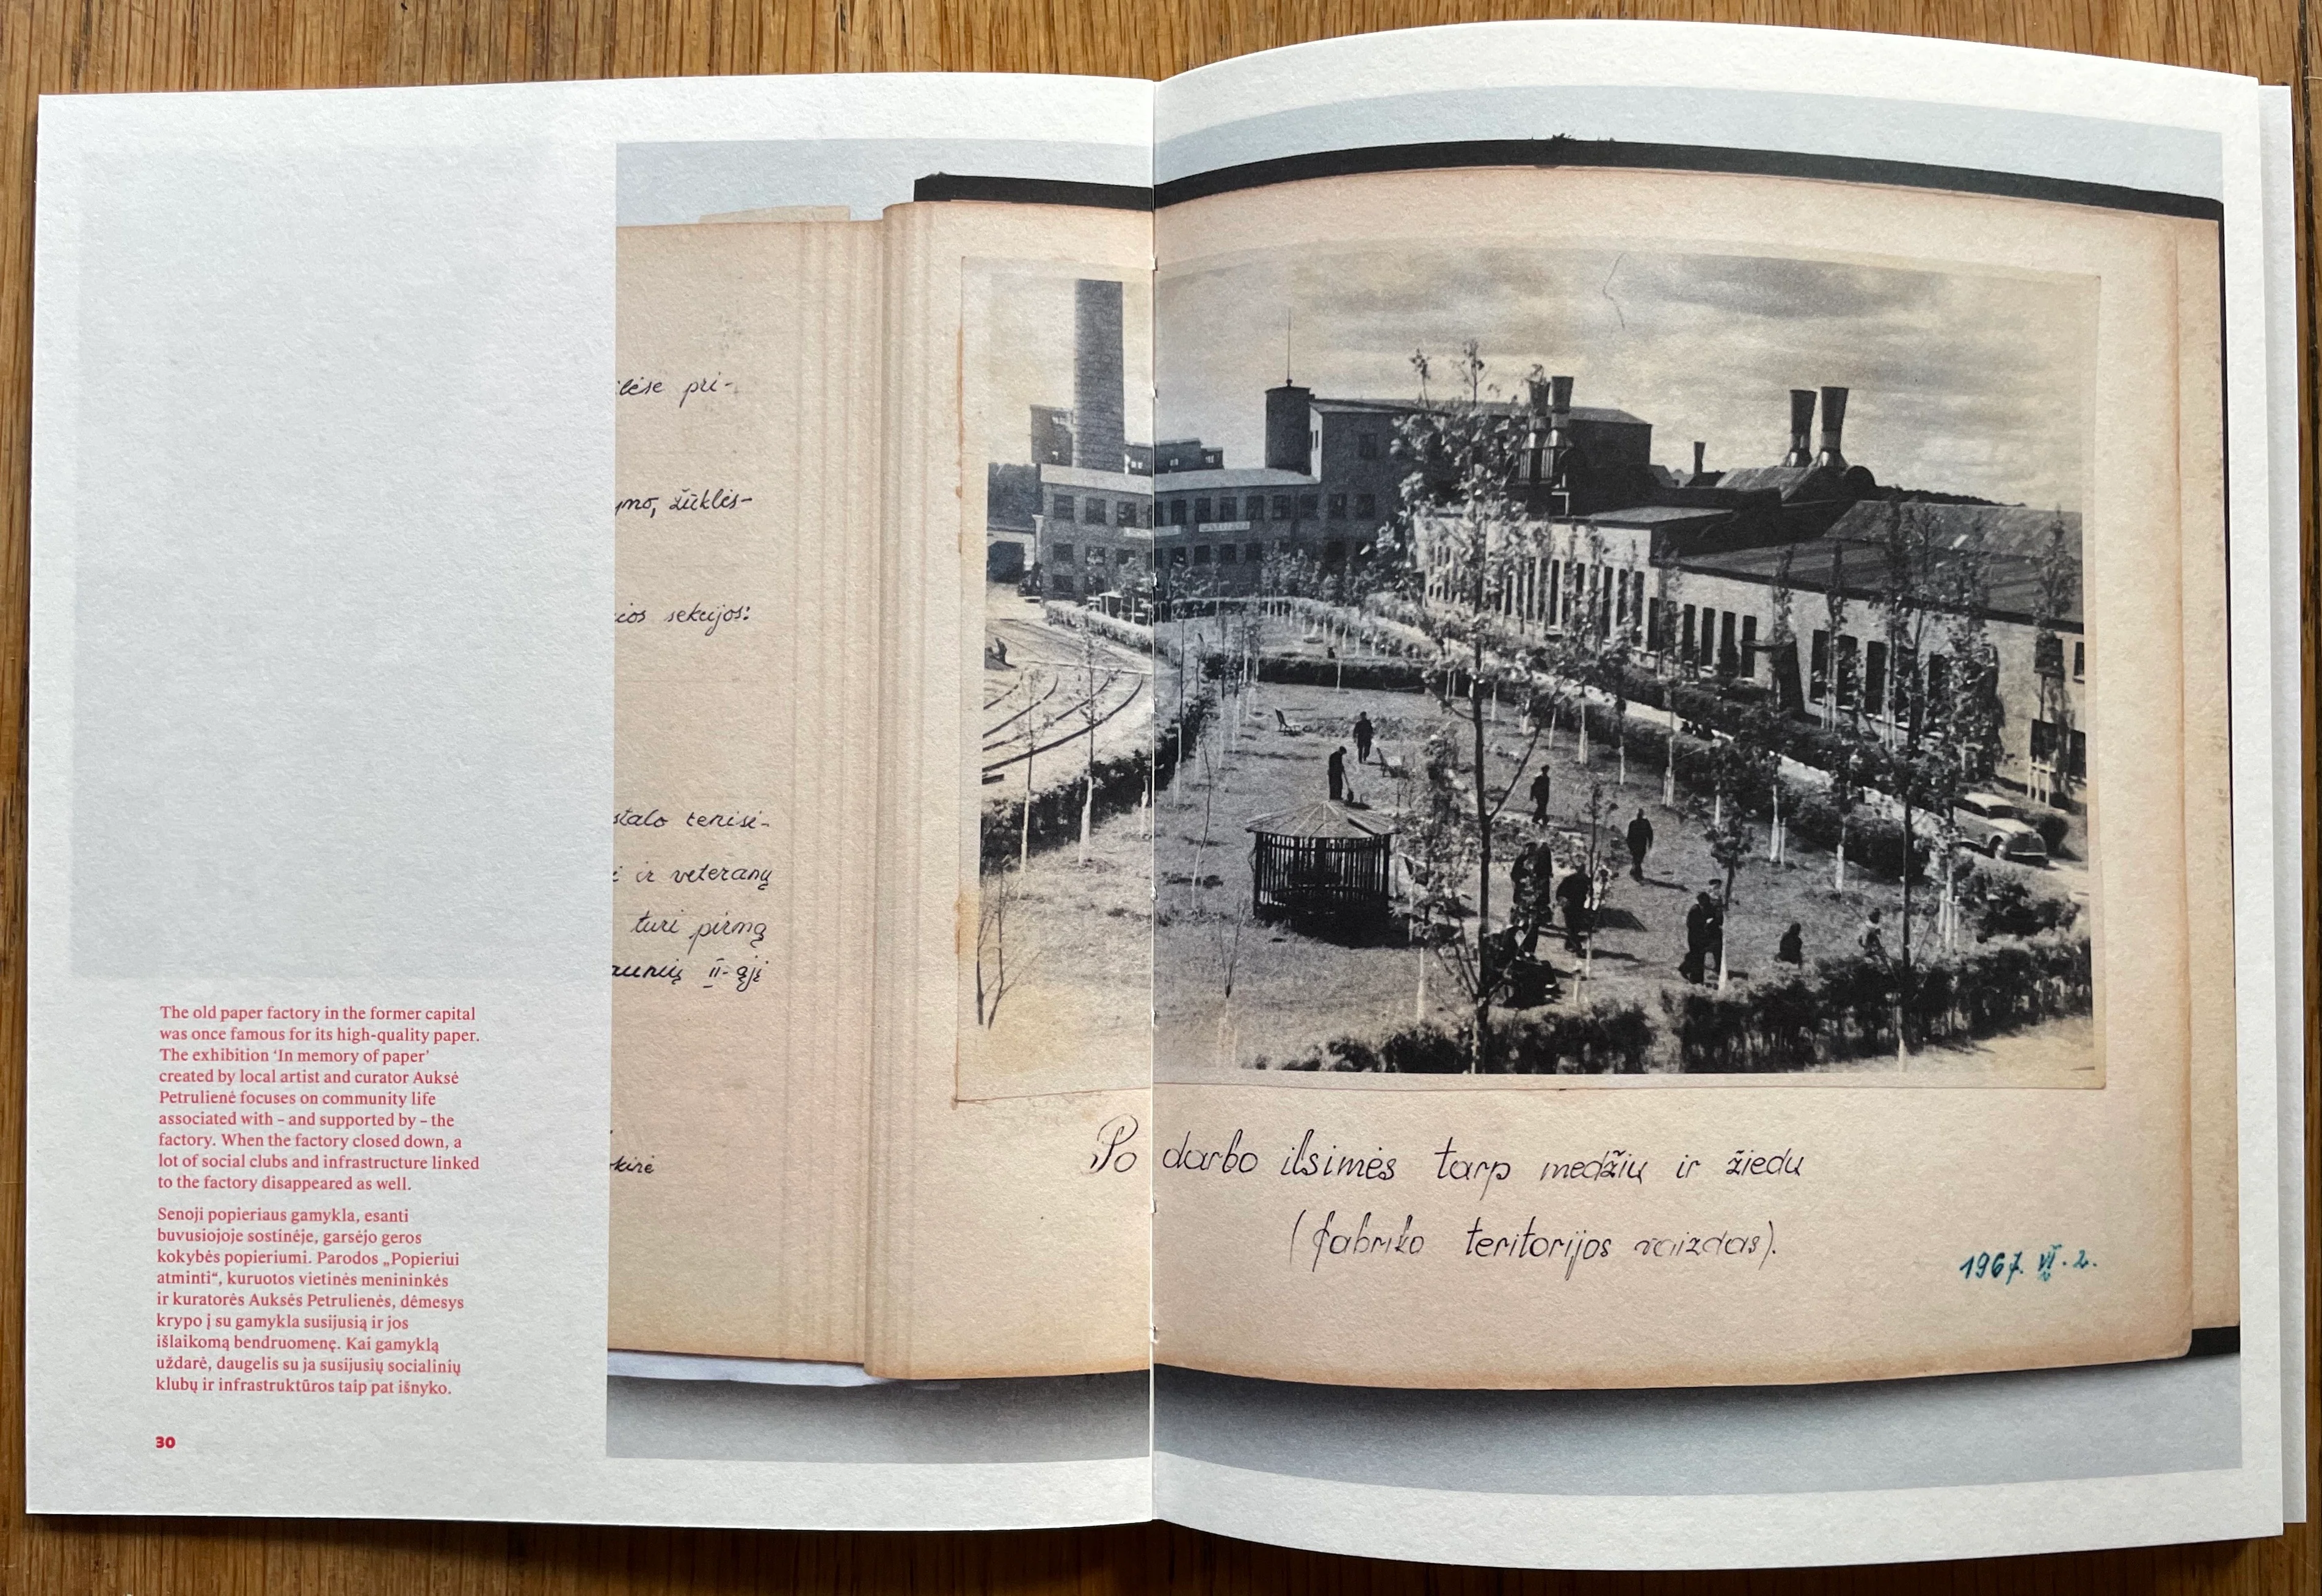 The old paper factory in the former capital
was once famous for its high-quality paper.
The exhibition ‘In memory of paper’
created by local artist and curator Auksė
Petrulienė focuses on community life
associated with – and supported by – the
factory. When the factory closed down, a
lot of social clubs and infrastructure linked
to the factory disappeared as well.
Senoji popieriaus gamykla, esanti
buvusiojoje sostinėje, garsėjo geros
kokybės popieriumi. Parodos „Popieriui
atminti“, kuruotos vietinės menininkės
ir kuratorės Auksės Petrulienės, dėmesys
krypo į su gamykla susijusią ir jos
išlaikomą bendruomenę. Kai gamyklą
uždarė, daugelis su ja susijusių socialinių
klubų ir infrastruktūros taip pat išnyko.
30
pri-
žūklės-
sekcijos:
stalo tenisi-
ir veteranų
turi pirmą
II-ąjį
Po darbo ilsimės tarp medžių ir žiedu
(fabriko teritorijos vaizdas).
1967. VI. 2.